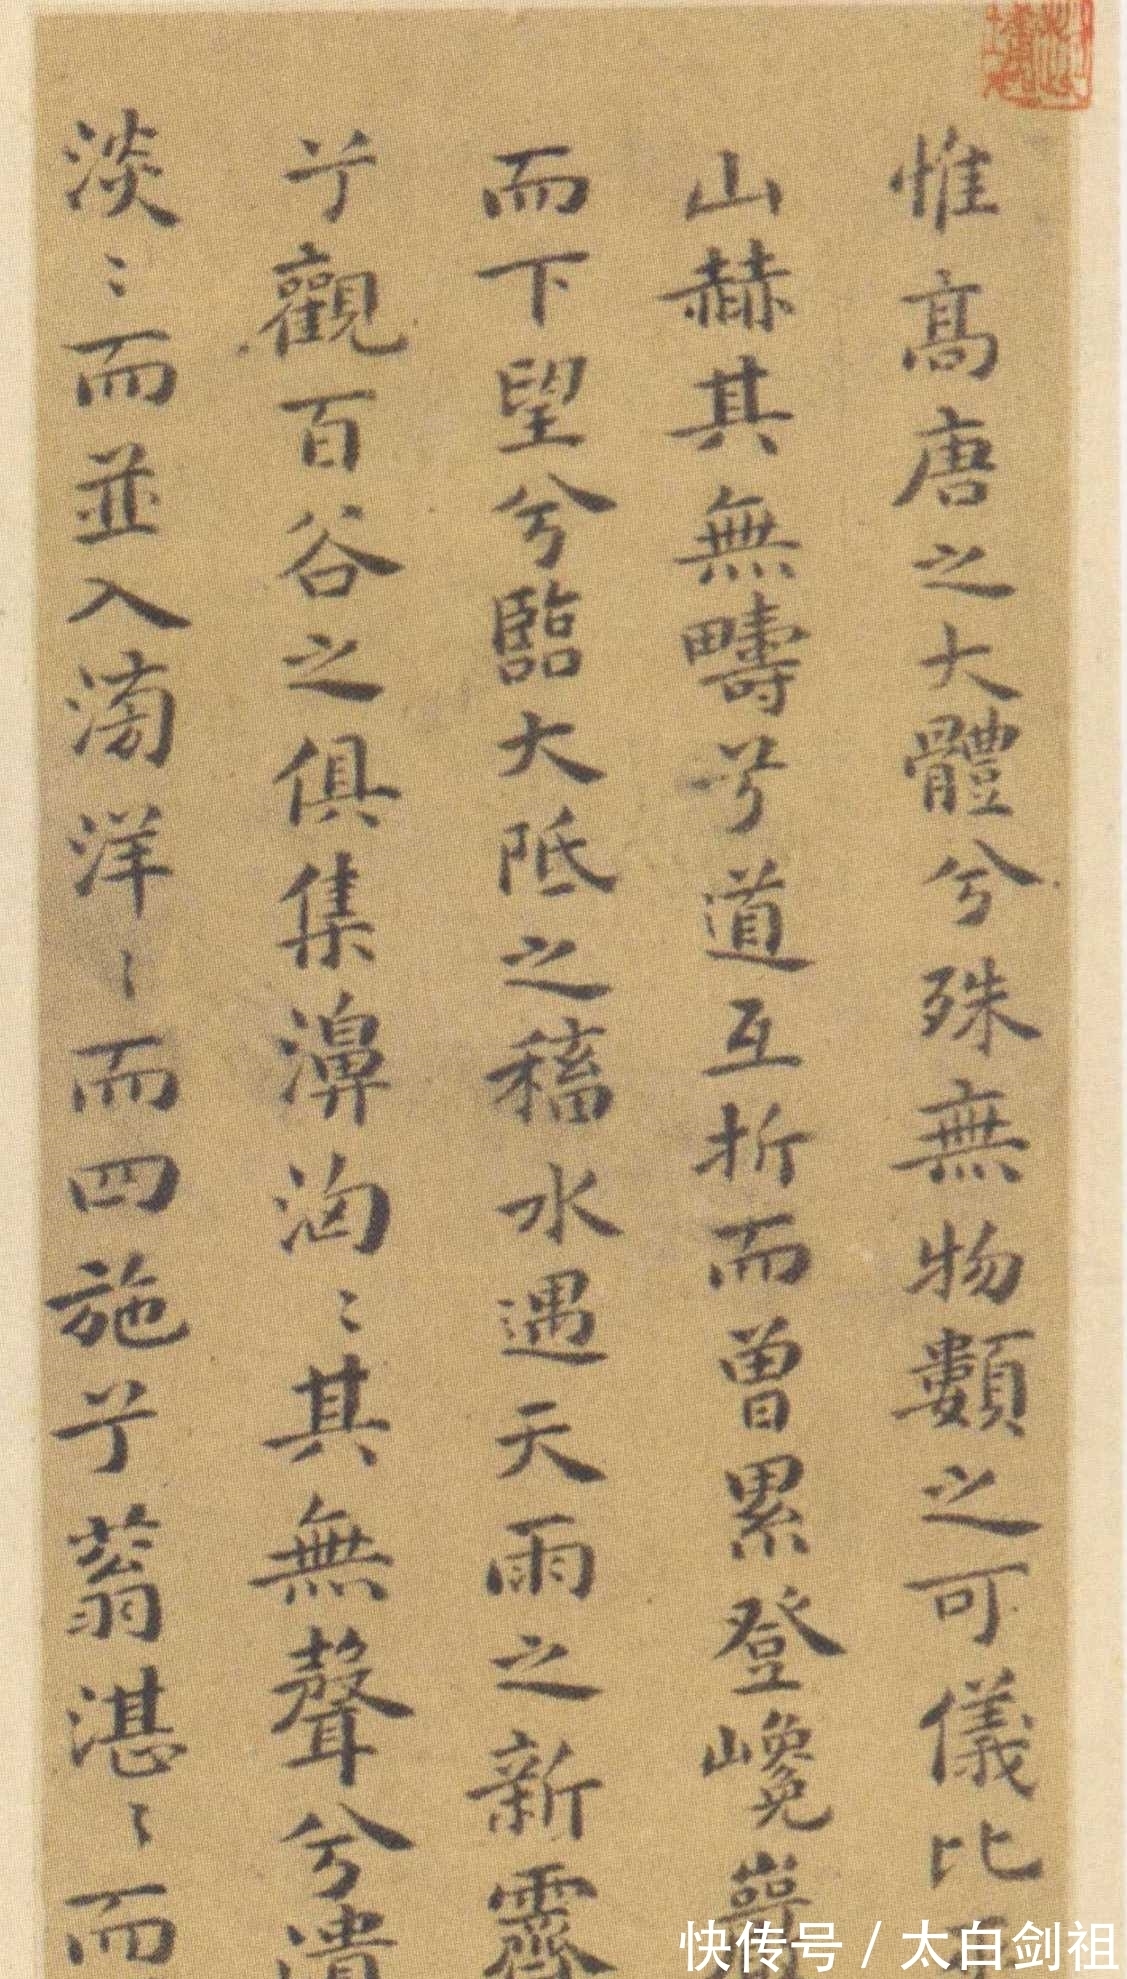 惟髙唐之大體兮殊無物類之可儀比
山赫其無疇兮道互折而曾累登巉
而下望兮臨大阺之稸水遇天雨之新霽
兮觀百谷之俱集濞洶〻其無聲兮潰
淡〻而並入滂洋〻而四施兮蓊湛〻而
快传号 / 太白剑祖